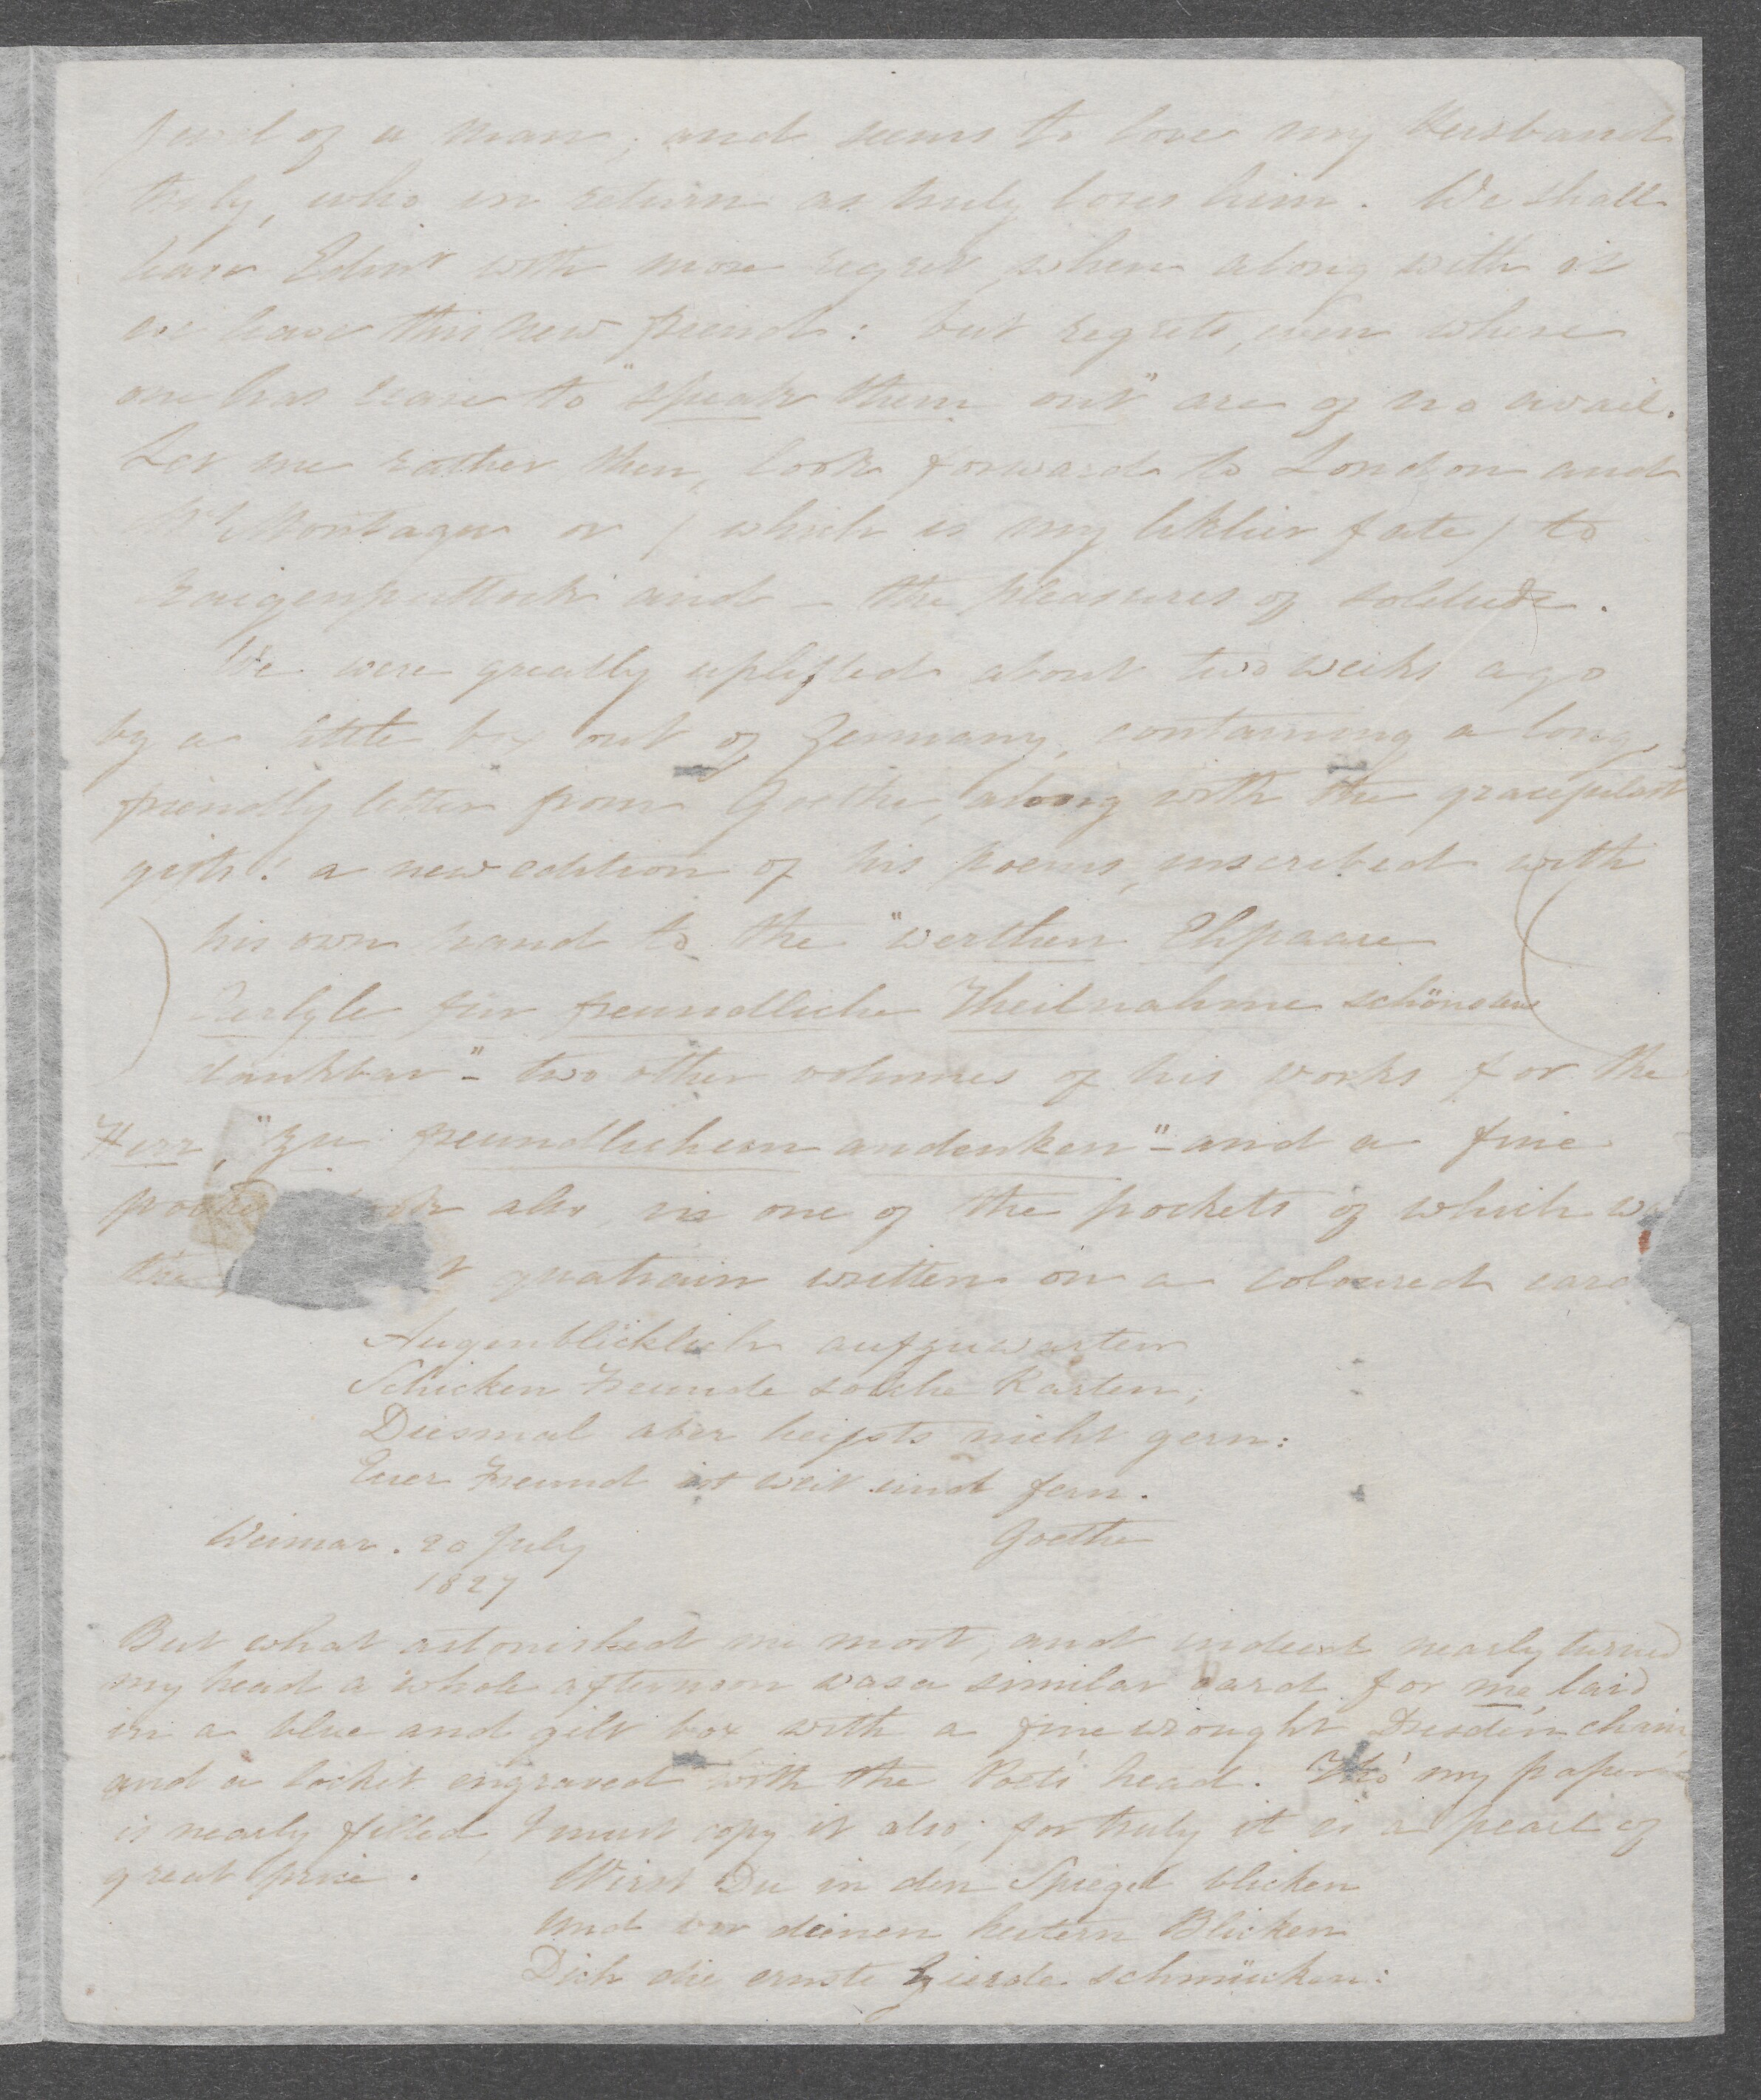 jewel of a man, and seems to love my Husband
truly, who in return as truly loves him. We shall
leave Edinr with more regret, when along with it
we leave this new friend: but regrets, even where
one has leave to "speak them out" are of no avail.
Let me rather then, look forward to London and
Mrs Montagu or ( which is my liklier fate ) to
Craigenputtock and – the pleasures of solitude.
We were greatly uplifted about two weeks ago
by a little box out of Germany, containing a long
friendly letter from Goethe, along with the gracefulest
gifts! a new edition of his poems, inscribed with
his own hand to the "werthen Ehpaare
Carlyle für freundliche Theilnahme schönsten
dankbar" – two other volumes of his works for the
Herr, "zu freundlichem andenken" – and a fine
pocket also, in one of the pockets of which
the quatrain written on a coloured card
Augenblicklich aufzuwarten
Schicken Freunde solche Karten;
Diesmal aber heissts nicht gern:
Euer Freund ist weit und fern.
Weimar. 20 July Goethe
1827
But what astonished me most, and indeed nearly turned
my head a whole afternoon was a similar card for me, laid
in a blue and gilt box with a fine wrought Dresden chain,
and a locket engraved with the Poets' head. Tho' my paper
is nearly filled, I must copy it also; for truly it is a pearl of
great price. Wirst Du in den Spiegel blicken
Und vor deinen heitern Blicken
Dich die ernste Zierde schmücken: